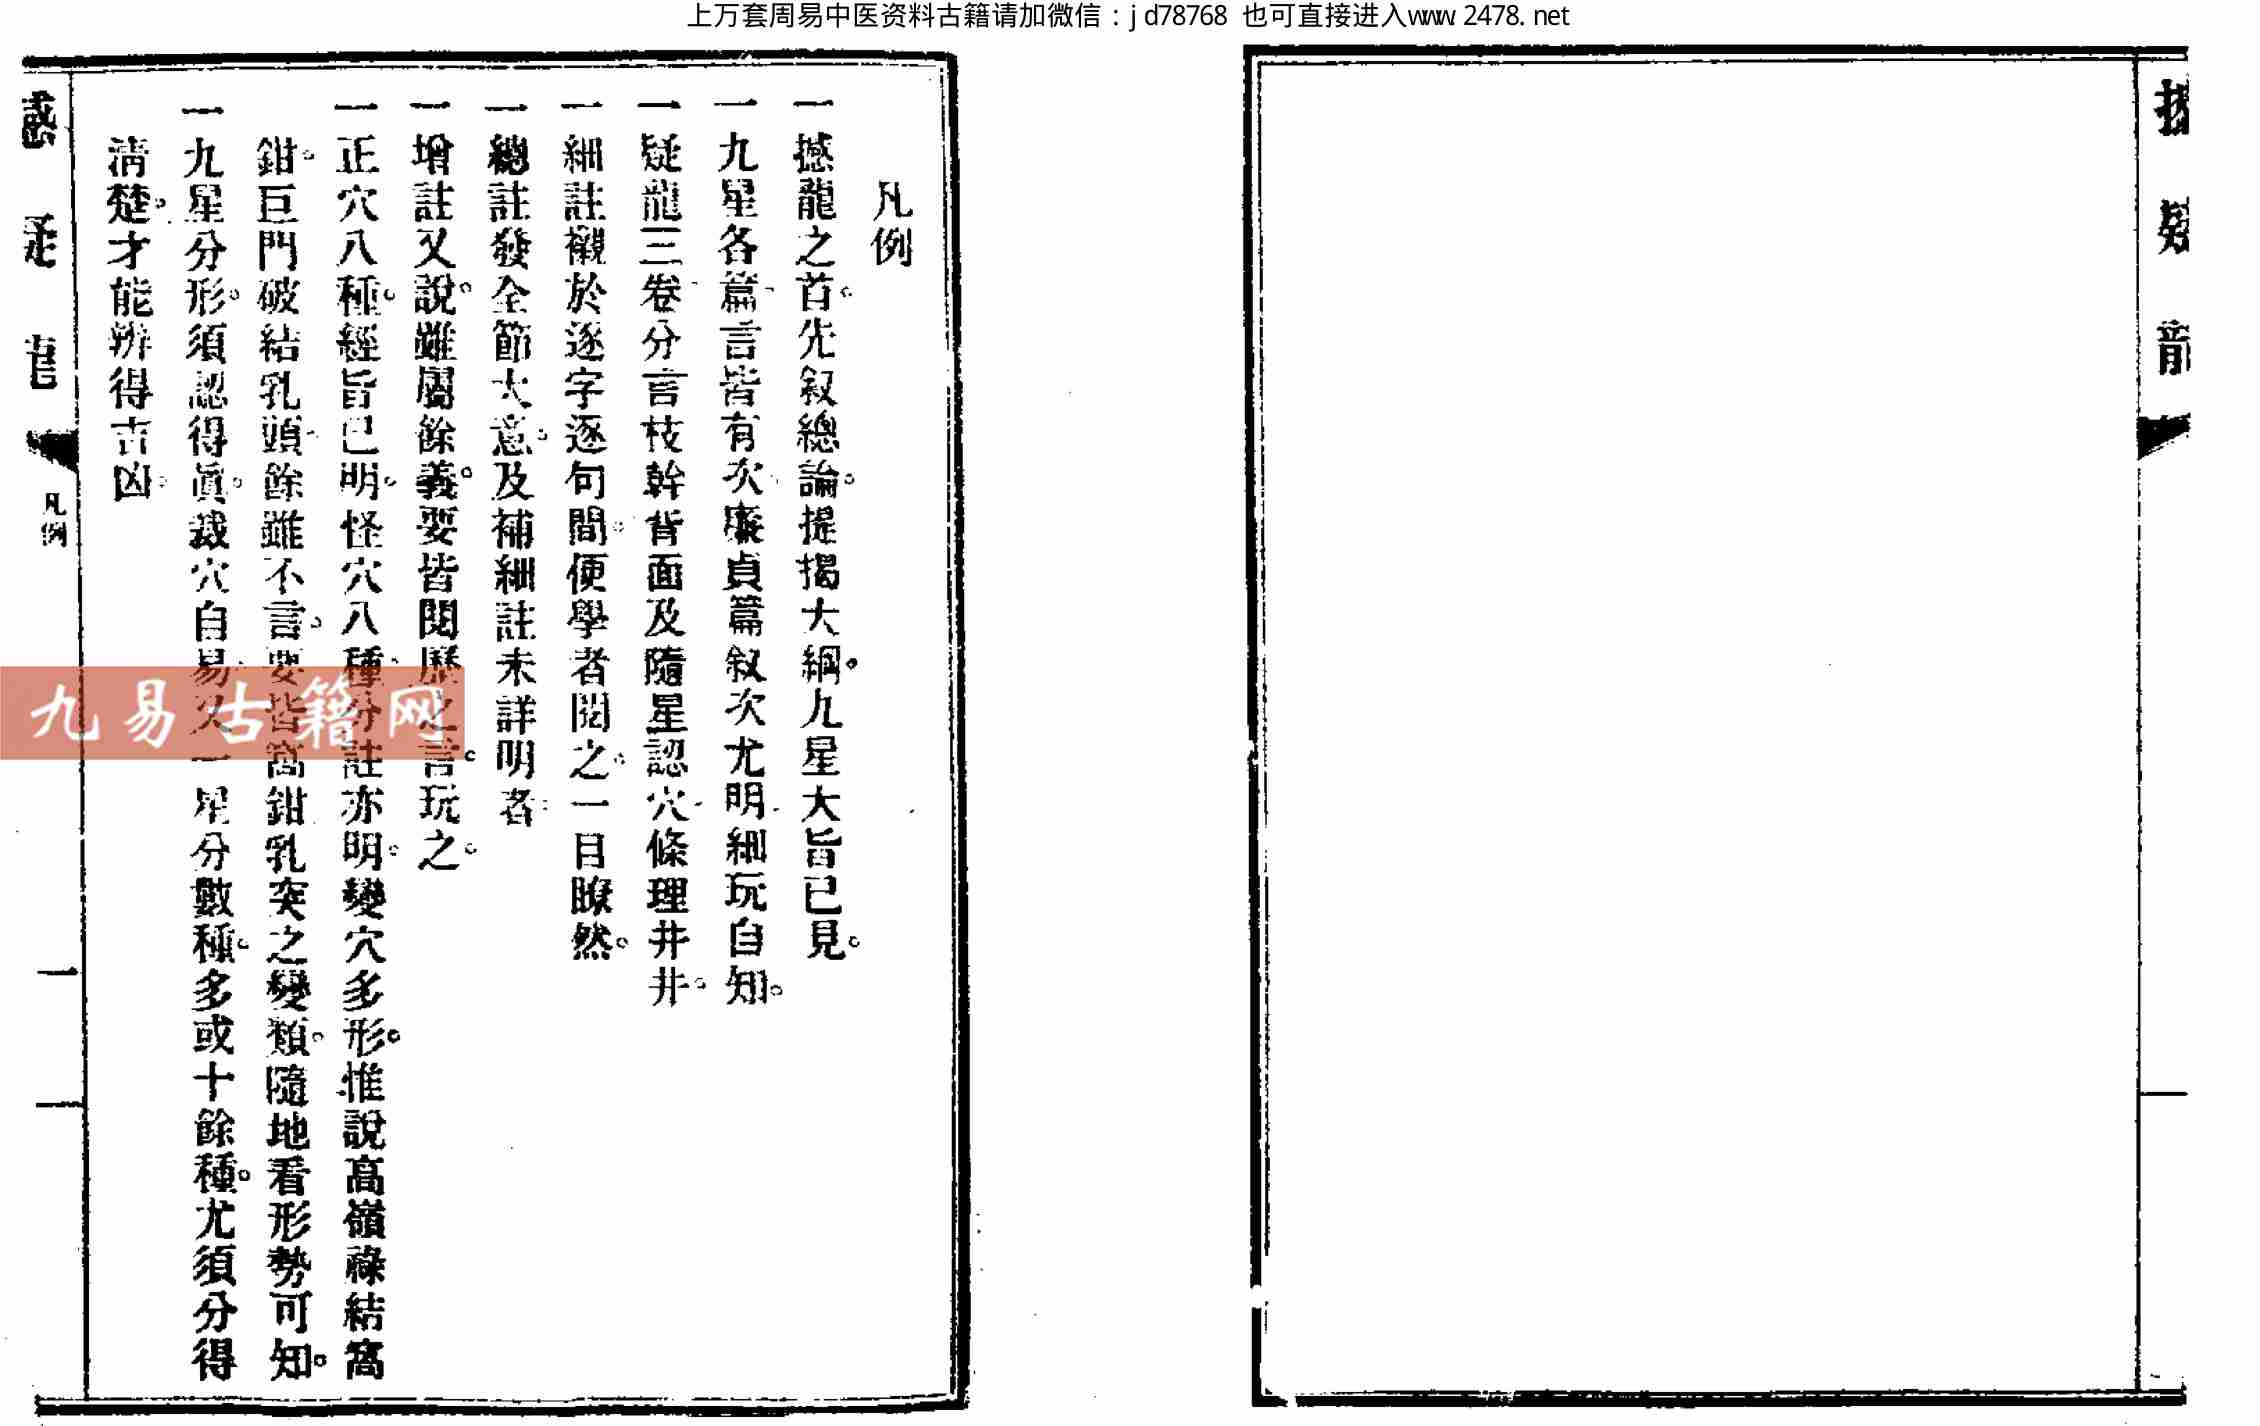 上万套周易中医资料古籍请加微信：jd78768 也可直接进入www.2478.net
凡例
一撼龍之首。先叙總論。提揭大綱。九星大旨已見。
一九星各篇。言皆有次。廉貞篇叙次尤明。細玩自知。
一疑龍三卷。分言枝幹背面及隨星認穴。條理井井。
一細註襯於逐字逐句間。便學者閱之。一目瞭然。
一總註發全節大意。及補細註未詳明者。
一增註又說。雖屬餘義。要皆閱歷之言。玩之。
一正穴八種。經旨已明。怪穴八種。分註亦明。變穴多形。惟說高嶺祿結窩
鉗。巨門破結乳頭。餘雖不言。要皆窩鉗乳突之變類。隨地看形勢可知。
一九星分形。須認得眞。裁穴自易。又一星分數種。多或十餘種。尤須分得
清楚。才能辨得吉凶。
撼疑龍
凡例
一
九易古籍网